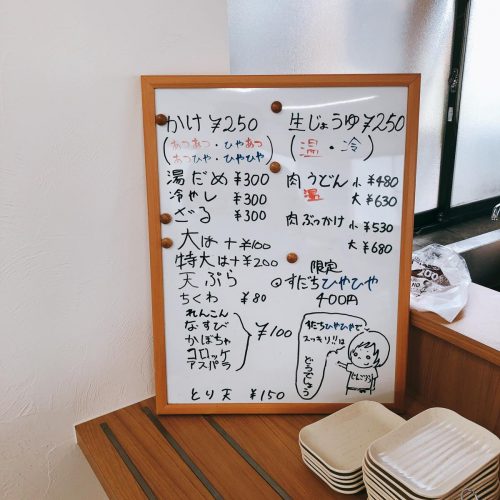 かけ ¥250
(あつあつ・ひやあつ
あつひや・ひやひや)
湯だめ ¥300
冷やし ¥300
ざる ¥300
大は+¥100
特大は+¥200
天ぷら
ちくわ ¥80
れんこん
なすび
かぼちゃ
コロッケ
アスパラ
¥100
とり天 ¥150
生じょうゆ ¥250
(温・冷)
肉うどん 小 ¥480
温 大 ¥630
肉ぶっかけ 小 ¥530
大 ¥680
限定
◎すだちひやひや
400円
すだちひやひやで
スッキリ!!は
どうでしょう